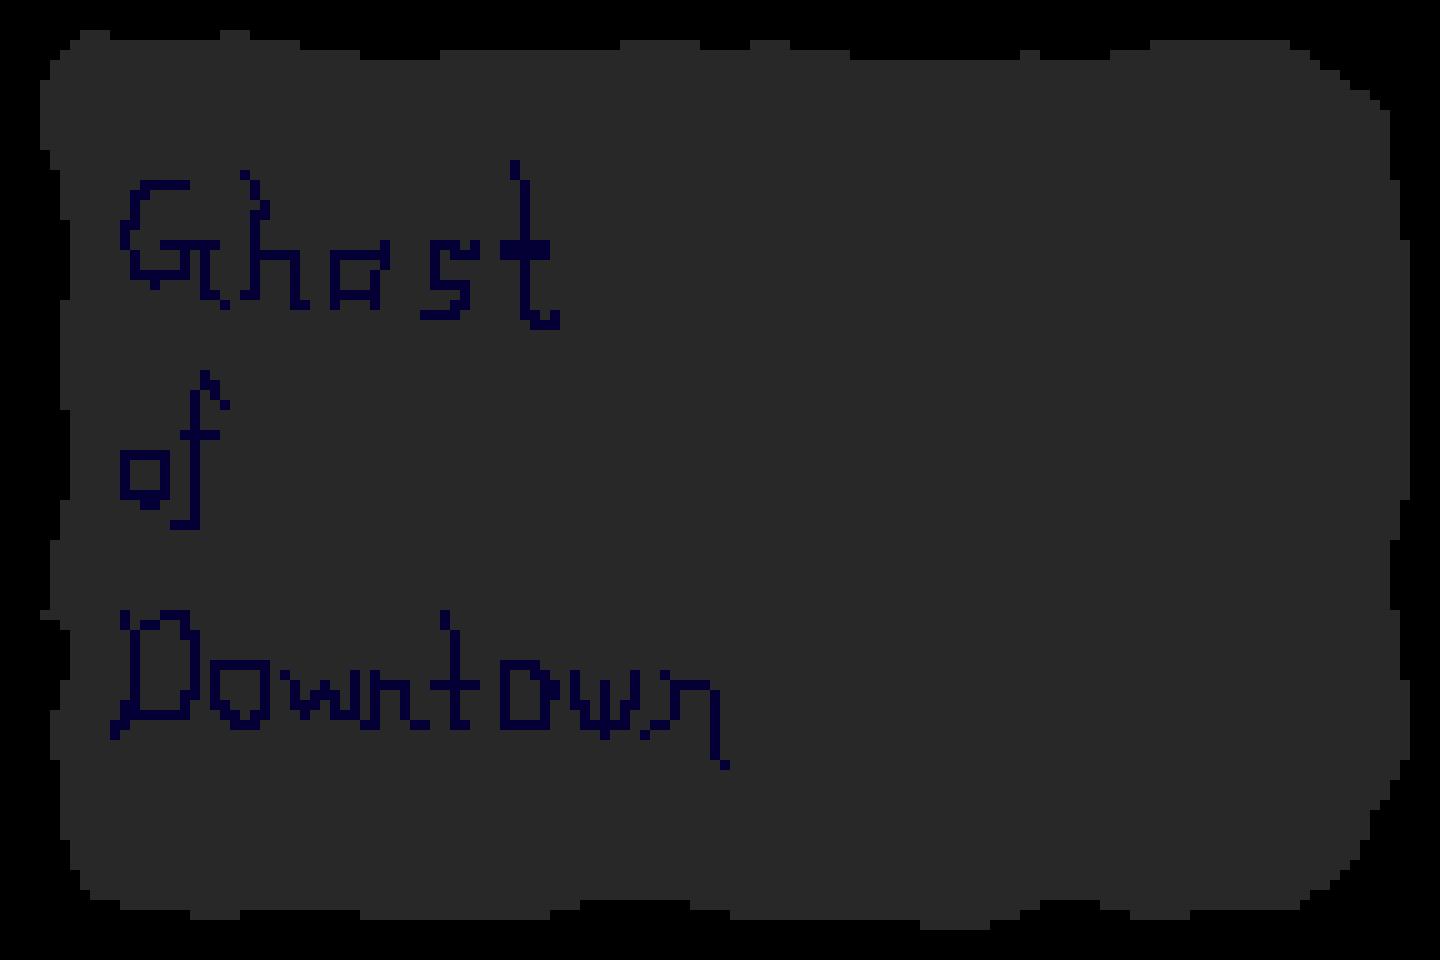 Ghost
of
Downtown